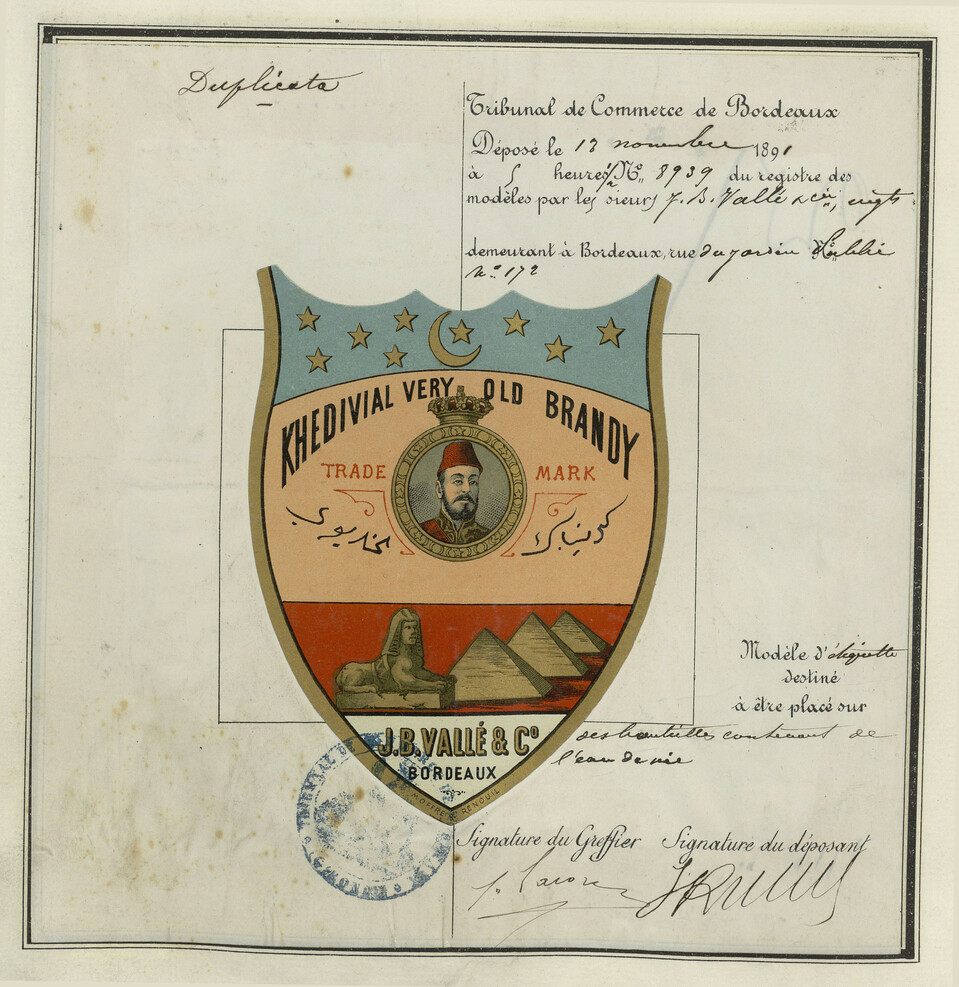 Duplicata
Tribunal de Commerce de Bordeaux
Déposé le 13 novembre 1891
à 5 heures ½ No 8939 du registre des
modèles par les sieurs J. B. Vallé & Cie, négts
demeurant à Bordeaux, rue du Jardin Public
No 172
KHEDIVIAL VERY OLD BRANDY
TRADE MARK
كونياك خديوي
J.B. VALLÉ & Co
BORDEAUX
Modèle d'étiquette
destiné
à être placé sur
des bouteilles contenant de
l'eau de vie
Signature du Greffier Signature du déposant